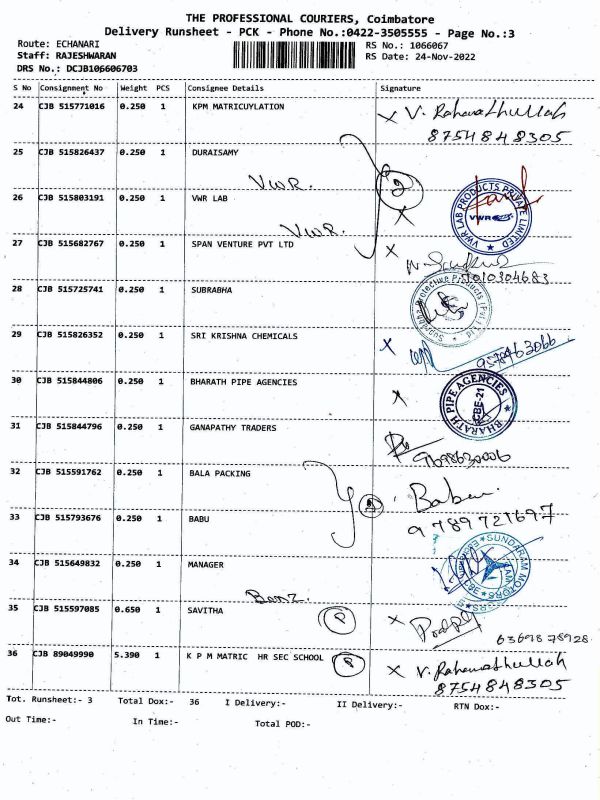 THE PROFESSIONAL COURIERS, Coimbatore
Delivery Runsheet - PCK - Phone No.:0422-3505555 - Page No.:3
Route: ECHANARI RS No.: 1066067
Staff: RAJESHWARAN RS Date: 24-Nov-2022
DRS No.: DCJB106606703
S No Consignment No Weight PCS Consignee Details Signature
24 CJB 515771016 0.250 1 KPM MATRICUYLATION X V. Rahamathullah
8754848305
25 CJB 515826437 0.250 1 DURAISAMY
VWR. 2
26 CJB 515803191 0.250 1 VWR LAB X VWR LAB PRODUCTS PRIVATE LIMITED VWR
VWR.
27 CJB 515682767 0.250 1 SPAN VENTURE PVT LTD X
9010304683
28 CJB 515725741 0.250 1 SUBRABHA
29 CJB 515826352 0.250 1 SRI KRISHNA CHEMICALS X
9578463066
30 CJB 515844806 0.250 1 BHARATH PIPE AGENCIES X BHARATH PIPE AGENCIES CBE-21
31 CJB 515844796 0.250 1 GANAPATHY TRADERS
9698630006
32 CJB 515591762 0.250 1 BALA PACKING 2 Babu
33 CJB 515793676 0.250 1 BABU 9789721697
34 CJB 515649832 0.250 1 MANAGER SUNDARAM MOTORS
Banz.
35 CJB 515597085 0.650 1 SAVITHA X
6369878928
36 CJB 89049990 5.390 1 K P M MATRIC HR SEC SCHOOL X V. Rahamathullah
8754848305
Tot. Runsheet:- 3 Total Dox:- 36 I Delivery:- II Delivery:- RTN Dox:-
Out Time:- In Time:- Total POD:-